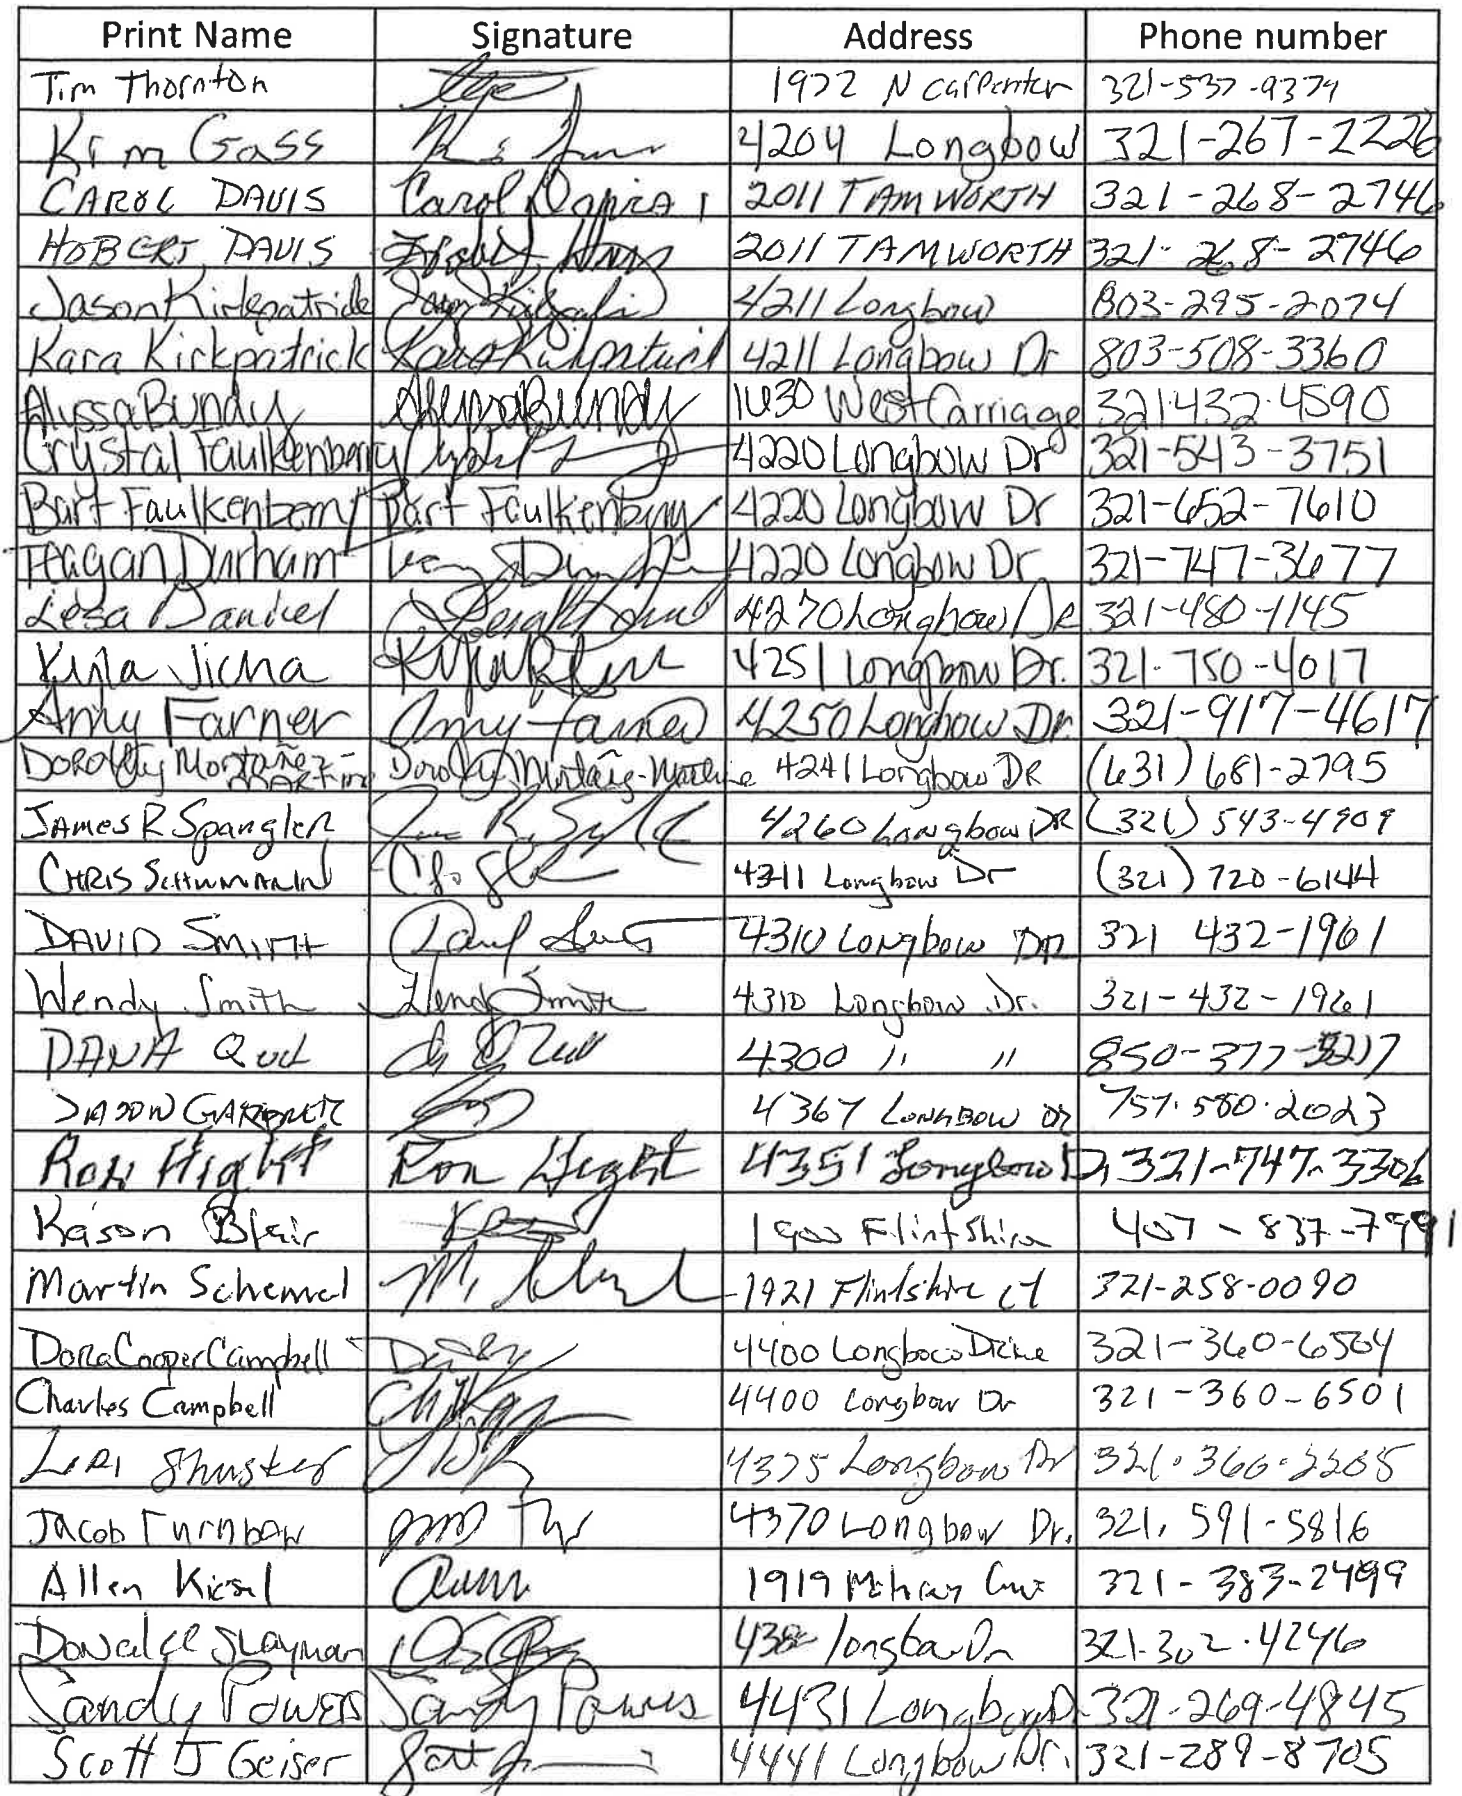 Print Name Signature Address Phone number
Tim Thornton 1922 N Carpenter 321-537-9379
Kim Gass 4204 Longbow 321-267-2226
CAROL DAVIS Carol Davis 2011 TAMWORTH 321-268-2746
HOBERT DAVIS 2011 TAMWORTH 321-268-2746
Jason Kirkpatrick 4211 Longbow 803-295-2074
Kara Kirkpatrick Kara Kirkpatrick 4211 Longbow Dr 803-508-3360
Alyssa Bundy Alyssa Bundy 1630 West Carriage 321.432.4590
Crystal Faulkenberry 4220 Longbow Dr 321-543-3751
Bart Faulkenberry Bart Faulkenberry 4220 Longbow Dr 321-652-7610
Teagan Durham 4220 Longbow Dr. 321-747-3677
Lesa Daniel 4270 Longbow DR 321-480-1145
Kyla Jicha 4251 Longbow Dr. 321.750-4017
Amy Farner Amy Farner 4250 Longbow Dr. 321-917-4617
Montañez- 4241 Longbow DR (631) 681-2795
MARTINE
JAMES R Spangler 4260 Longbow DR (321) 543-4909
CHRIS SCHUMANN 4311 Longbow Dr (321) 720-6144
DAVID SMITH 4310 Longbow DR 321 432-1961
Wendy Smith Wendy Smith 4310 Longbow Dr. 321-432-1961
DANA 4300 " " 850-377-
JASON 4367 LONGBOW DR 757.580.2023
Ron Hight Ron Hight 4351 Longbow D 321-747-3306
Kason Blair 1900 Flintshire 407-837-7991
Martin Schemel 1921 Flintshire ct 321-258-0090
Dora Cooper Campbell 4400 Longbow Drive 321-360-6504
Charles Campbell 4400 Longbow Dr 321-360-6501
Lori Shuster 4375 Longbow Dr 321.360.2205
Jacob Turnbow 4370 Longbow Dr. 321.591-5816
Allen Kiesel 1919 321-383-2499
Slayman Longbow Dr 321-302.4246
Sandy Powers Sandy Powers 4431 Longbow D 321-269-4845
Scott J Geiser 4441 Longbow Dr. 321-289-8705